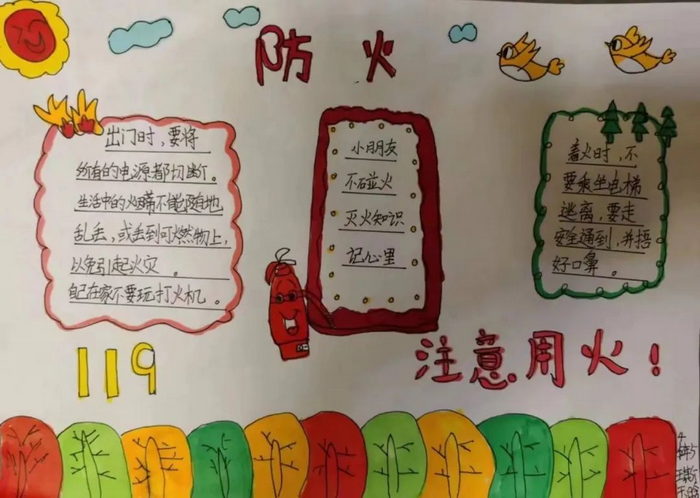 防火
出门时，要将
所有的电源都切断。
生活中的火不能随地
乱丢，或丢到可燃物上，
以免引起火灾。
自己在家不要玩打火机。
小朋友
不碰火
灭火知识
记心里
着火时，不
要乘坐电梯
逃离，要走
安全通到，并捂
好口鼻。
119
注意用火！